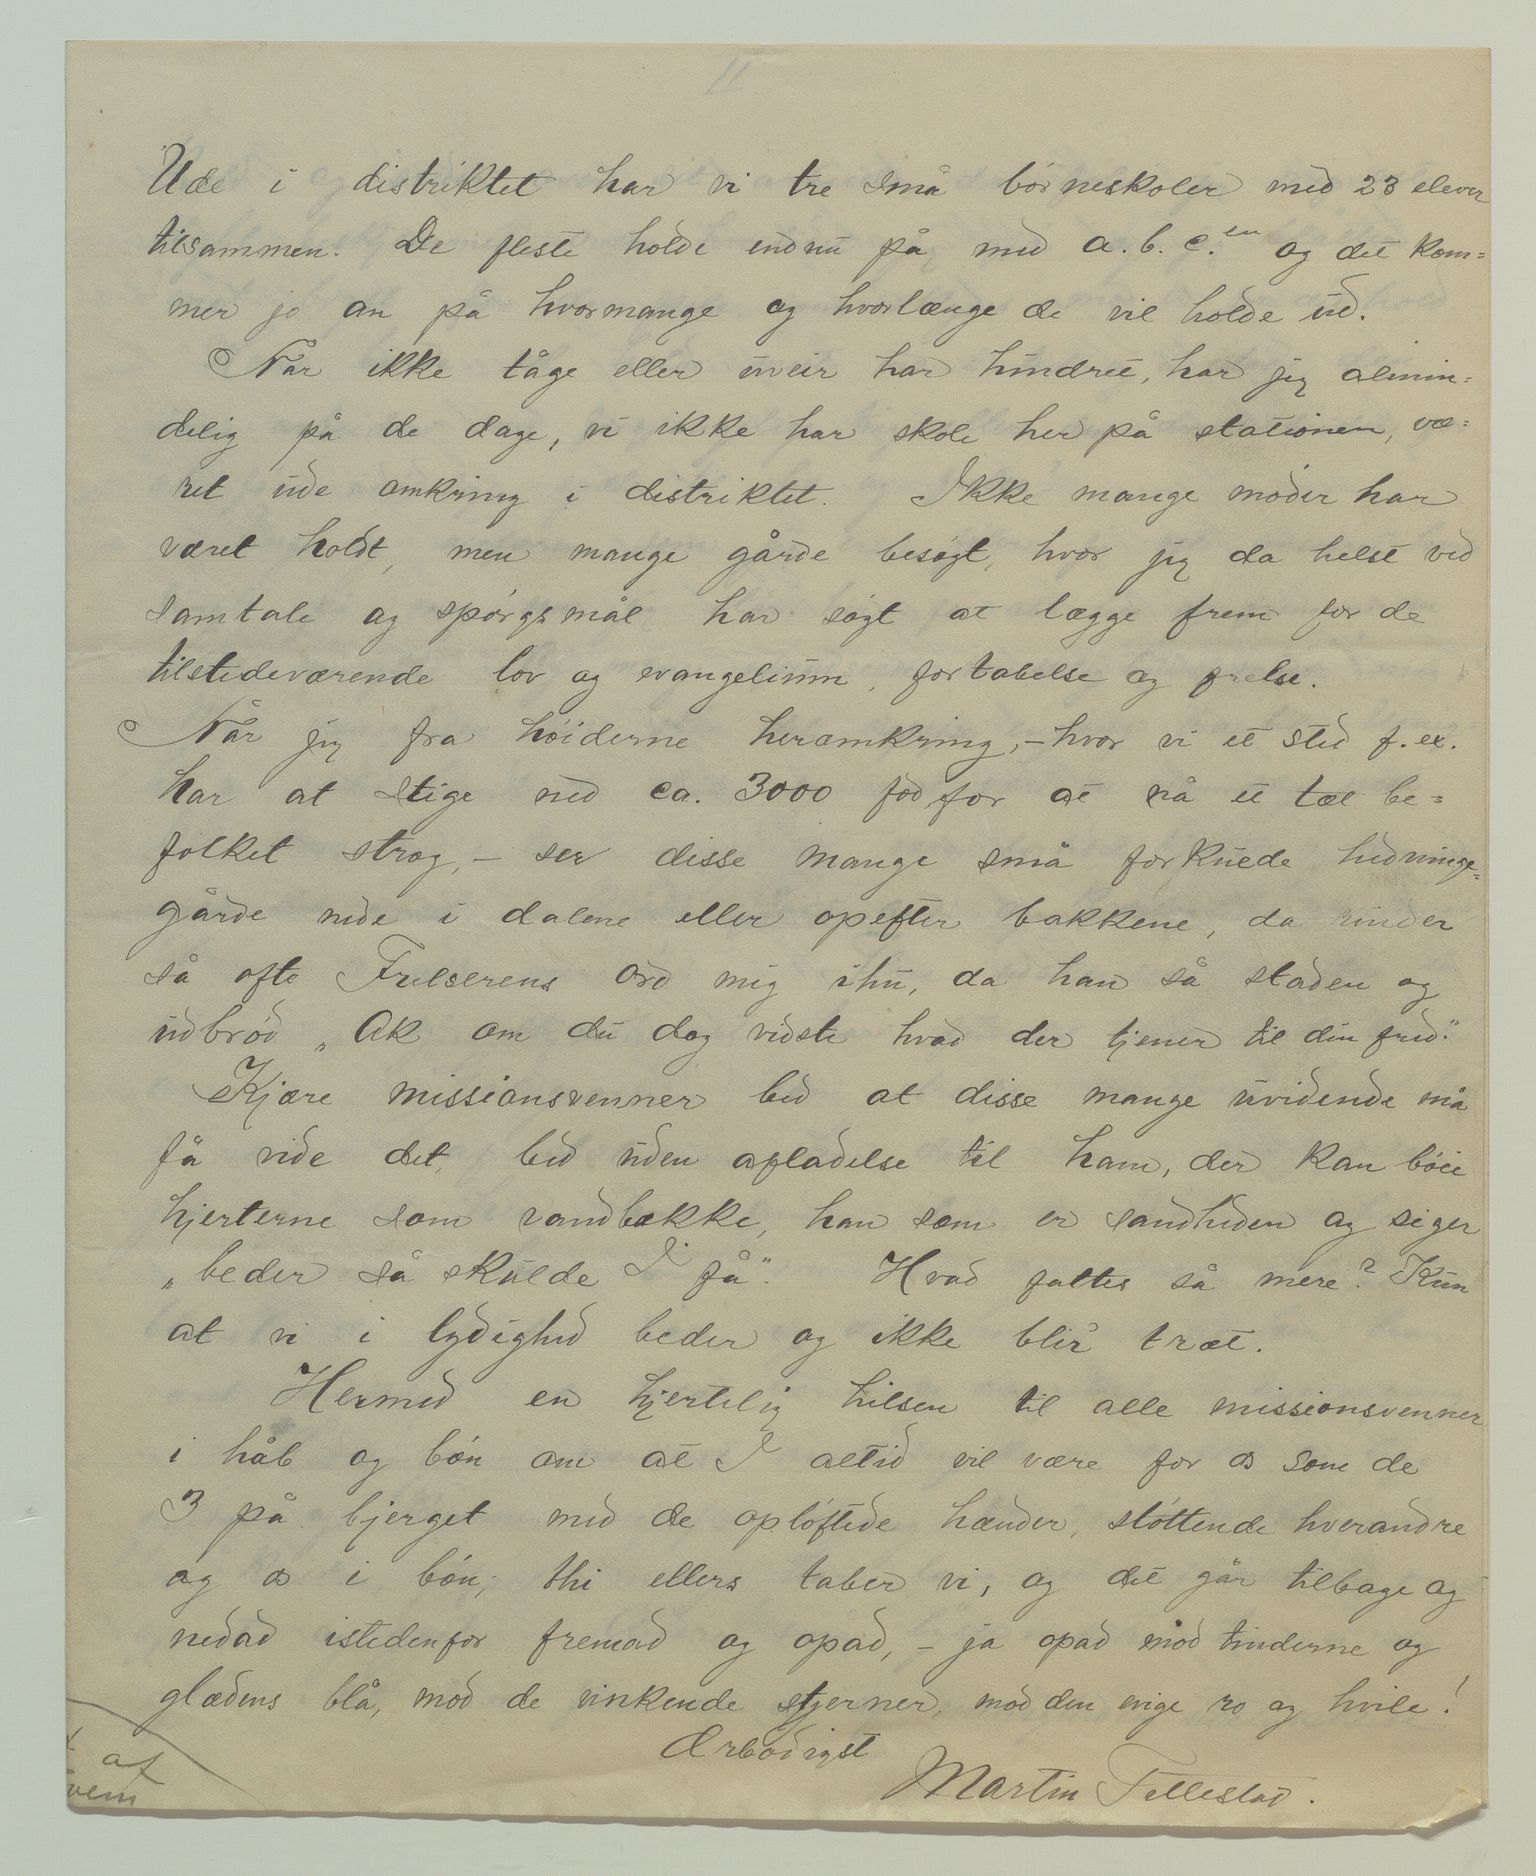 11
Ude i distriktet har vi tre små børneskoler med 23 elever
tilsammen. De fleste holde endnu på med a.b.c.en og det kom=
mer jo an på hvormange og hvorlænge de vil holde ud.
Når ikke tåge eller uveir har hindret, har jeg almin=
delig på de dage, vi ikke har skole her på stationen, væ=
ret ude omkring i distriktet. Ikke mange møder har
været holdt, men mange gårde besøgt, hvor jeg da helst ved
samtale og spørgsmål har søgt at lægge frem for de
tilstedeværende lov og evangelium, fortabelse og frelse.
Når jeg fra høiderne heromkring, – hvor vi et sted f. ex.
har at stige ned ca. 3000 fod for at nå et tæt be=
folket strøg, – ser disse mange små forkuede hedninge=
gårde nede i dalene eller opefter bakkene, da rinder
så ofte Frelserens ord mig ihu, da han så staden og
udbrød „Ak om du dog vidste hvad der tjener til din fred."
Kjære missionsvenner bed at disse mange uvidende må
få vide det, bed uden afladelse til ham, der kan bøie
hjerterne som vandbække, han som er sandheden og siger
„beder så skulde I få". Hvad fattes så mere? Kun
at vi i lydighed beder og ikke blir træt.
Hermed en hjertelig hilsen til alle missionsvenner
i håb og bøn om at I altid vil være for os som de
3 på bjerget med de opløftede hænder, støttende hverandre
og os i bøn; thi ellers taber vi, og det går tilbage og
nedad istedenfor fremad og opad, – ja opad mod tinderne og
glædens blå, mod de vinkende stjerner, mod den evige ro og hvile!
Ærbødigst
Martin Tellestad.
af